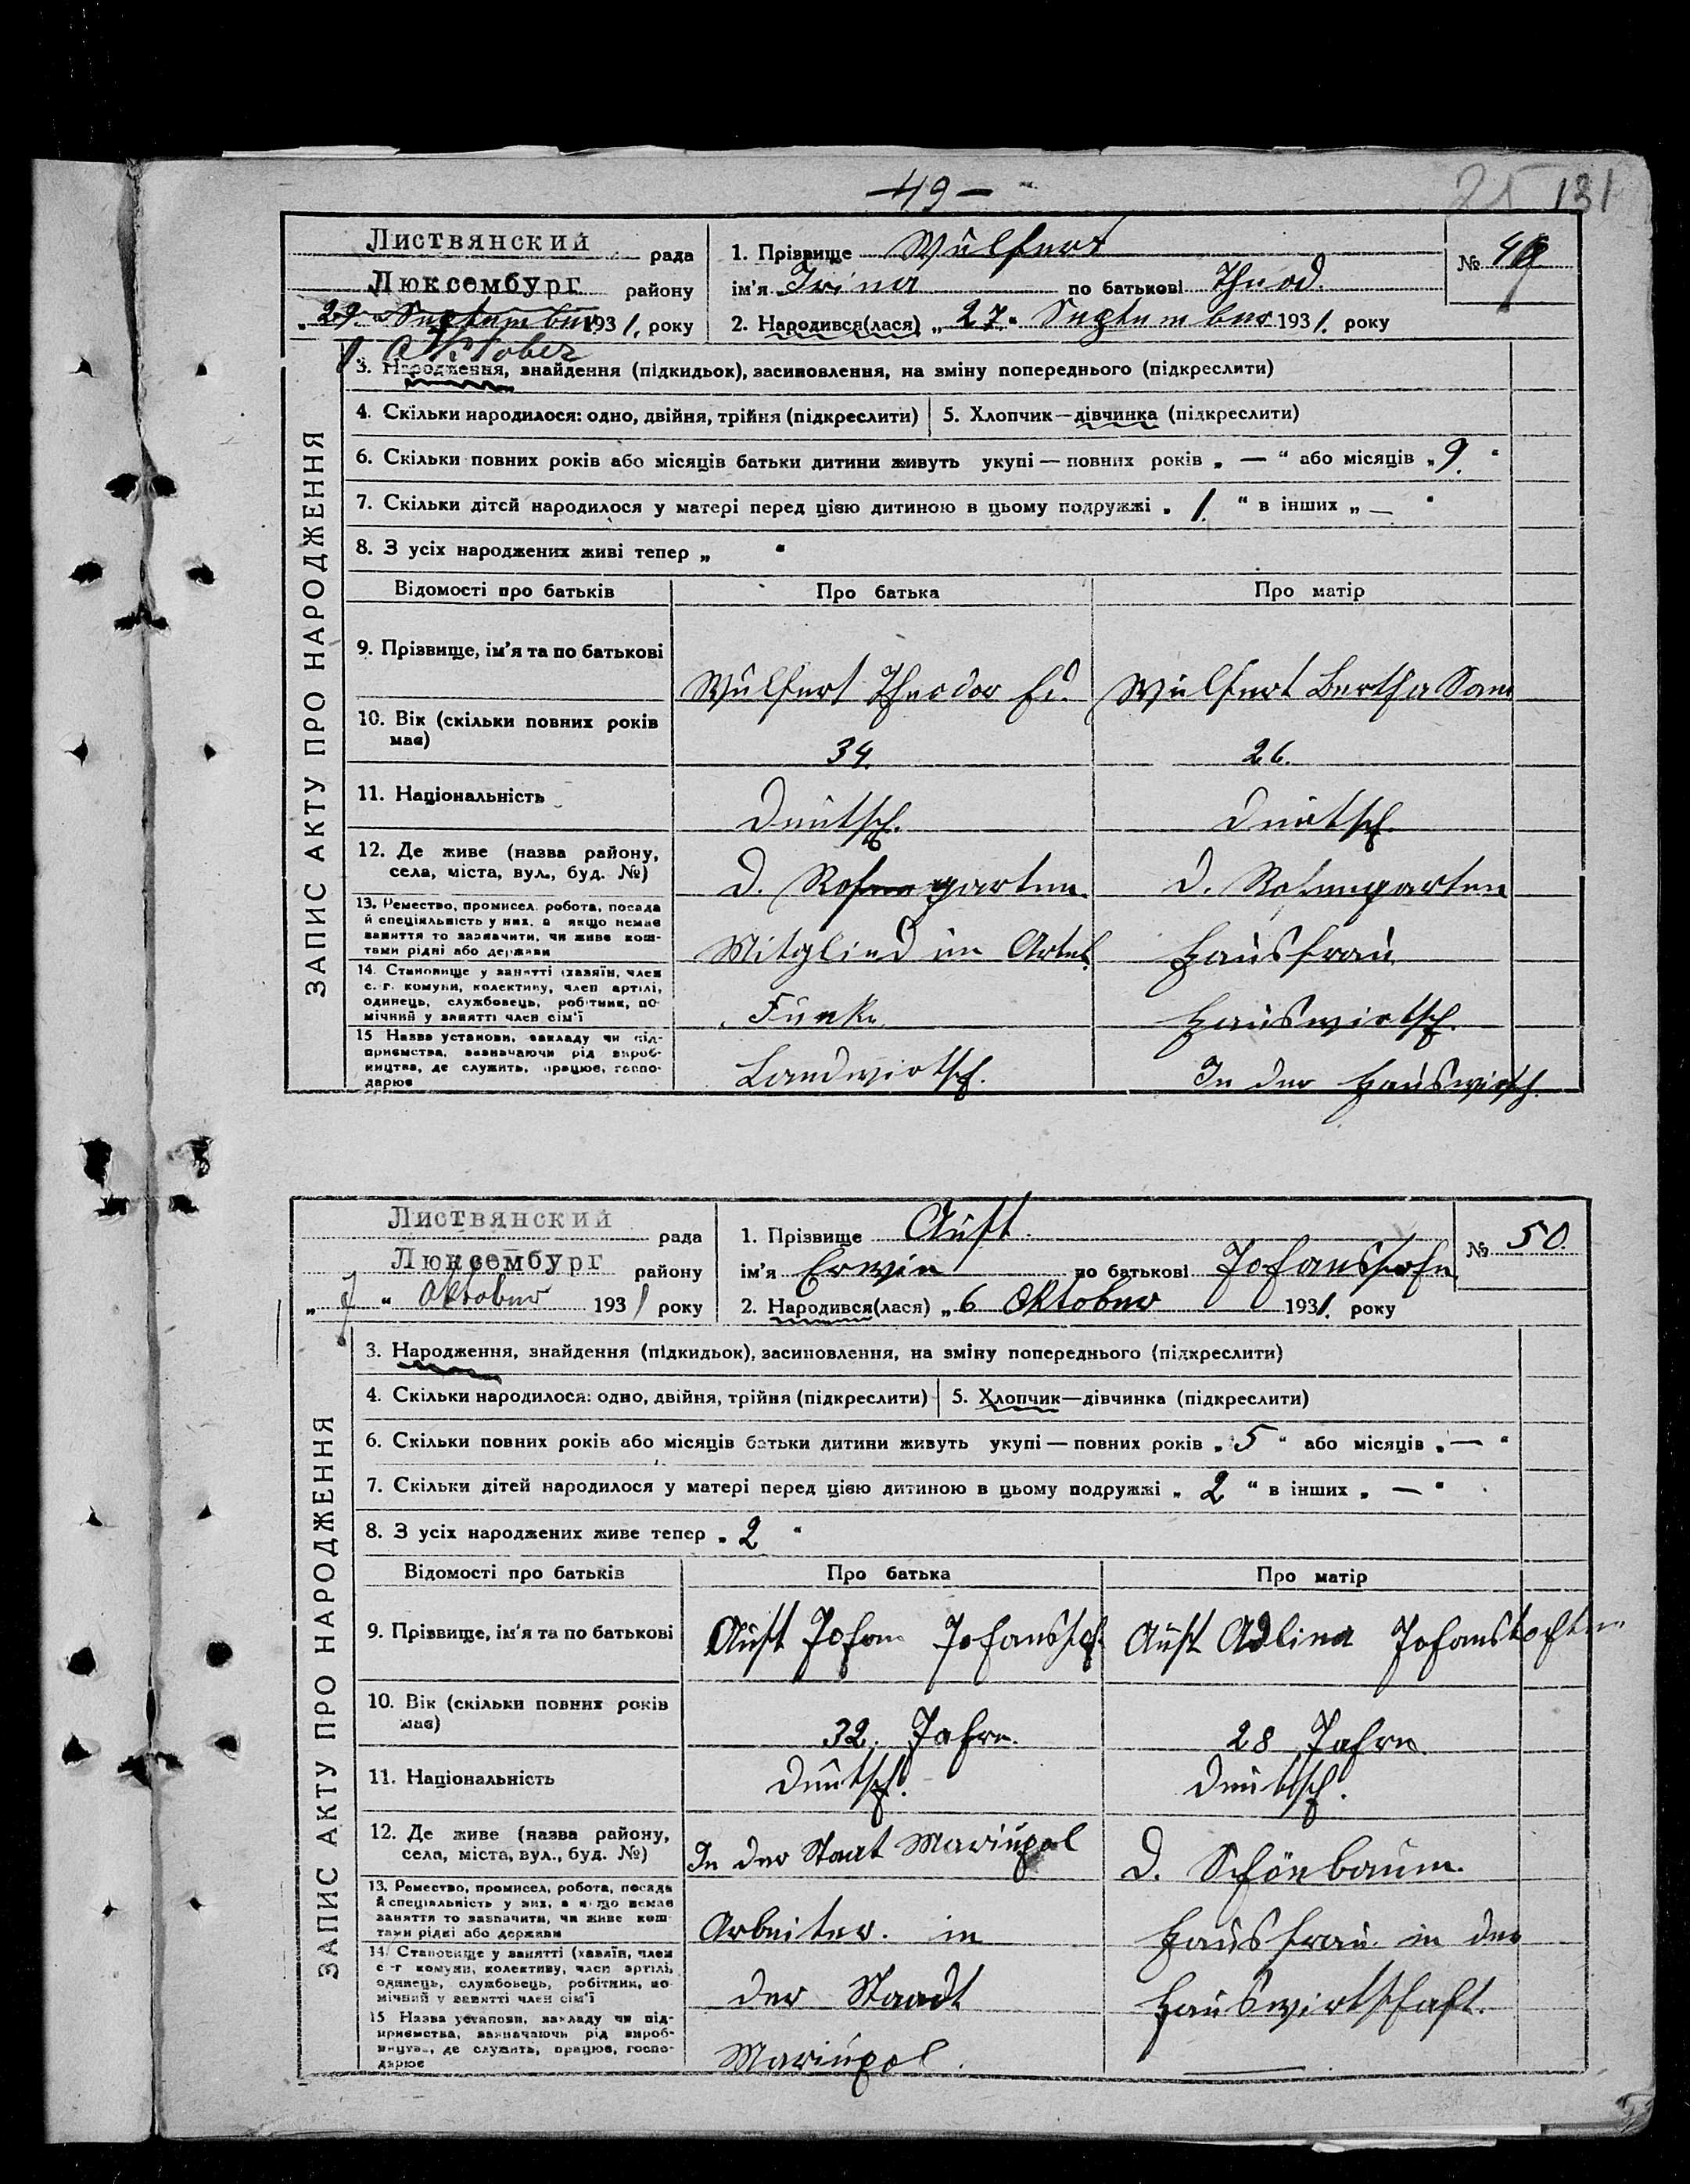 — 49 —
25 131
Листвянский рада
Люксембург району
„ 29 " September 1931. року
1 Oktober
1. Прізвище Wülfert
ім'я Irina по батькові Theod.
2. Народився(лася) „ 27 " September 1931. року
№ 49
ЗАПИС АКТУ ПРО НАРОДЖЕННЯ
3. Народження, знайдення (підкидьок), засиновлення, на зміну попереднього (підкреслити)
4. Скільки народилося: одно, двійня, трійня (підкреслити) 5. Хлопчик—дівчинка (підкреслити)
6. Скільки повних років або місяців батьки дитини живуть укупі — повних років „ — " або місяців „ 9. "
7. Скільки дітей народилося у матері перед цією дитиною в цьому подружжі „ 1. " в інших „ — "
8. З усіх народжених живі тепер „ "
Відомості про батьків Про батька Про матір
9. Прізвище, ім'я та по батькові
Wülfert Theodor Ed. Wülfert Bertha Sam
10. Вік (скільки повних років
має)
34. 26.
11. Національність
Deutsch. Deutsch.
12. Де живе (назва району,
села, міста, вул., буд. №)
D. Rosengarten. D. Rosengarten
13. Ремество, промисел, робота, посада
й спеціяльність у них, а якщо немає
заняття то зазначити, чи живе кош-
тами рідні або держави
Mitglied im Artel. Hausfrau
14. Становище у занятті (хазяїн, член
с.-г. комуни, колективу, член артілі,
одинець, службовець, робітник, по-
мічний у занятті член сім'ї
Funke. Hauswirtsch.
15 Назва установи, закладу чи під-
приємства, зазначаючи рід вироб-
ництва, де служить, працює, госпо-
дарює
Landwirtsch. In der Hauswirtsch.
Листвянский рада
Люксембург району
„ 7 " Oktober 1931 року
1. Прізвище Aust.
ім'я Erwin по батькові Johanssohn
2. Народився(лася) „ 6 Oktober 1931. року
№ 50.
ЗАПИС АКТУ ПРО НАРОДЖЕННЯ
3. Народження, знайдення (підкидьок), засиновлення, на зміну попереднього (підкреслити)
4. Скільки народилося: одно, двійня, трійня (підкреслити) 5. Хлопчик—дівчинка (підкреслити)
6. Скільки повних років або місяців батьки дитини живуть укупі — повних років „ 5 " або місяців „ — "
7. Скільки дітей народилося у матері перед цією дитиною в цьому подружжі „ 2 " в інших „ — "
8. З усіх народжених живе тепер „ 2 "
Відомості про батьків Про батька Про матір
9. Прізвище, ім'я та по батькові
Aust Johan Johanssoh. Aust Adlina Johanstochter
10. Вік (скільки повних років
має)
32. Jahre. 28 Jahre.
11. Національність
Deutsch. Deutsch.
12. Де живе (назва району,
села, міста, вул., буд. №)
In der Staat Mariupol D. Schönbaum.
13. Ремество, промисел, робота, посада
й спеціяльність у них, а якщо немає
заняття то зазначити, чи живе кош-
тами рідні або держави
Arbeiter. in Hausfrau in der
14. Становище у занятті (хазяїн, член
с.-г. комуни, колективу, член артілі,
одинець, службовець, робітник, по-
мічний у занятті член сім'ї
der Staadt Hauswirtschaft.
15 Назва установи, закладу чи під-
приємства, зазначаючи рід вироб-
ництва, де служить, працює, госпо-
дарює
Mariupol.